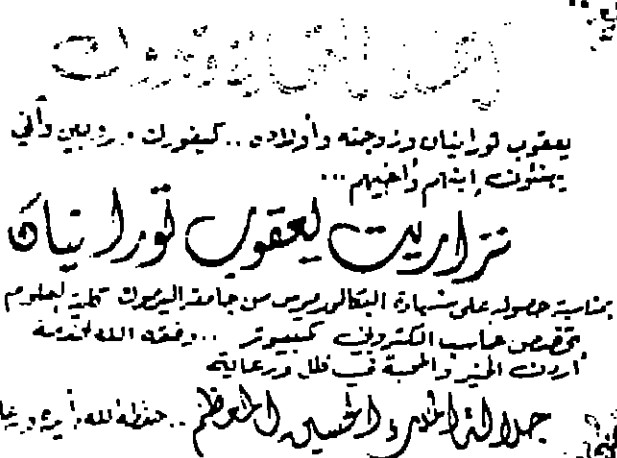 يعقوب تورانيان وزوجته وأولاده .. كيفورك و روبين وآني
يهنئون إبنهم وأخيهم ...
نزاريت يعقوب تورانيان
بمناسبة حصوله على شهادة البكالوريوس من جامعة اليرموك كلية العلوم
تخصص حاسب الكتروني كمبيوتر .. وفقه الله لخدمة
أردن الخير والمحبة في ظل ورعاية
جلالة الملك الحسين المعظم .. حفظه الله